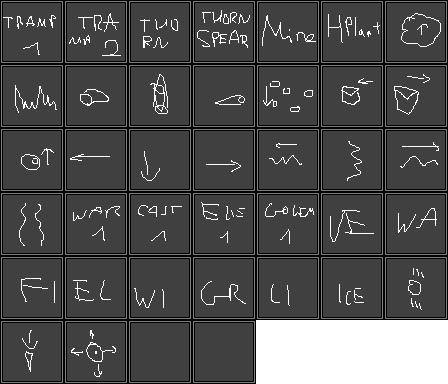 TRAMP 1
TRA MA 2
THO RN
THORN SPEAR
Mine
HPlant
WAR 1
CAST 1
ELIE 1
GOLEM 1
VE
WA
FI
EL
WI
GR
LI
ICE